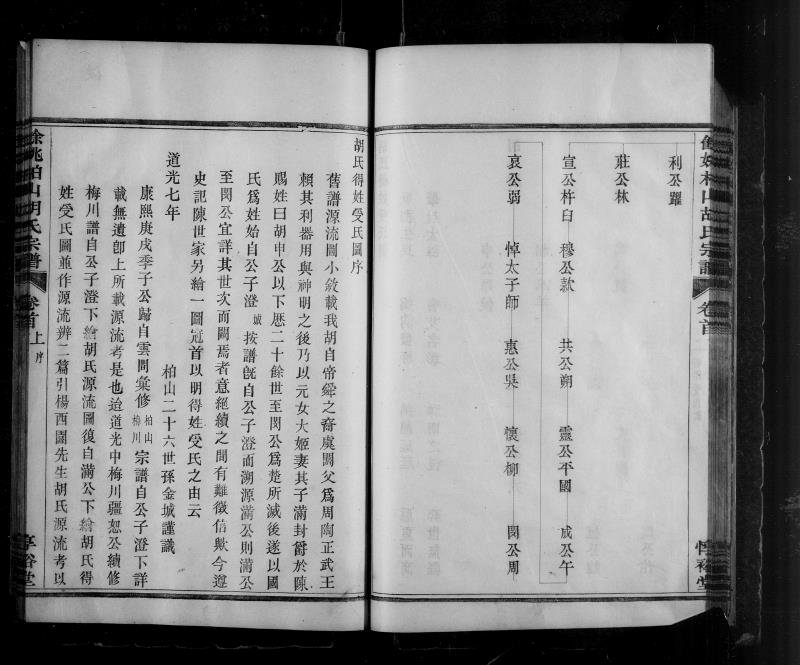 利公躍
莊公林
宣公杵臼 穆公款 共公朔 靈公平國 成公午
哀公弱 悼太子師 惠公吳 懷公柳 閔公周
胡氏得姓受氏圖序
舊譜源流圖小敘載我胡自帝舜之裔虞閼父為周陶正武王
賴其利器用與神明之後乃以元女大姬妻其子滿封爵於陳
賜姓曰胡申公以下歷二十餘世至閔公為楚所滅後遂以國
氏為姓始自公子澄城按譜旣自公子澄而溯源滿公則滿公
至閔公宜詳其世次而闕焉者意絕續之間有難徵信歟今遵
史記陳世家另繪一圖冠首以明得姓受氏之由云
道光七年 柏山二十六世孫金城謹識
康熙庚戌季子公歸自雲間彙修柏山梅川宗譜自公子澄下詳
載無遺卽上所載源流考是也迨道光中梅川疆恕公續修
梅川譜自公子澄下繪胡氏源流圖復自滿公下繪胡氏得
姓受氏圖並作源流辨二篇引楊西園先生胡氏源流考以
餘姚柏山胡氏宗譜 卷首上 序 享裕堂